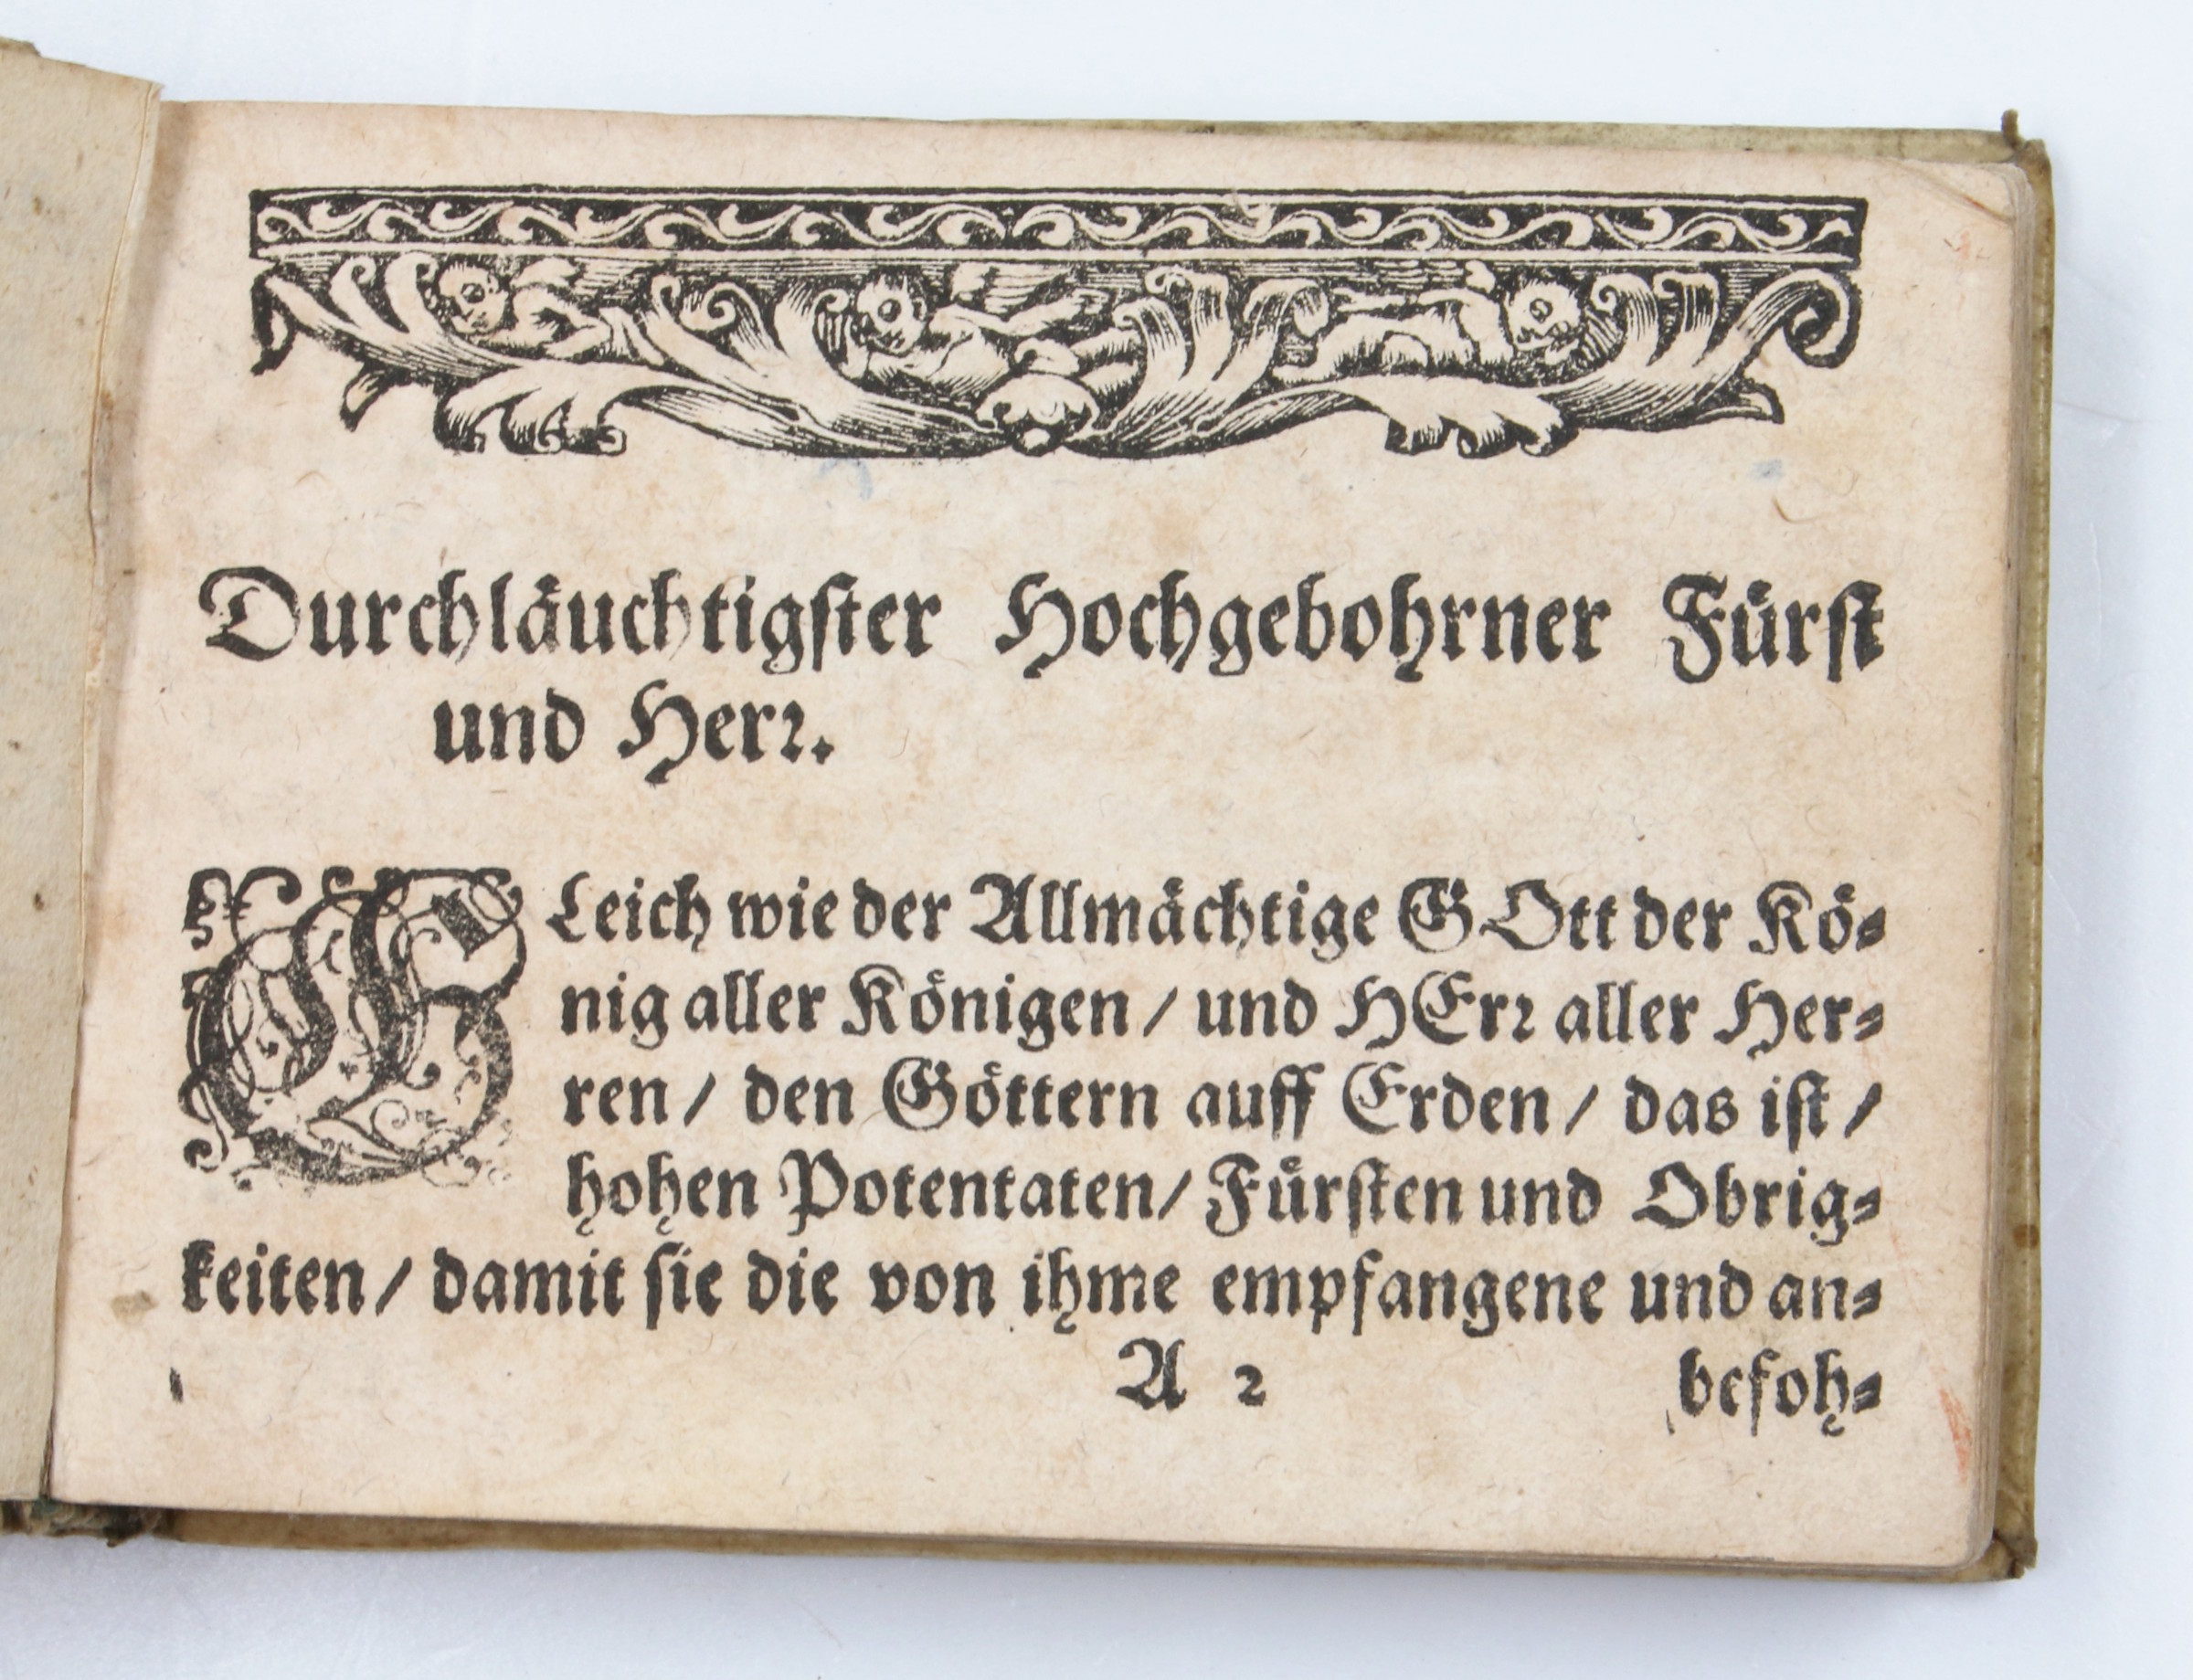 Durchläuchtigster Hochgebohrner Fürst
und Herꝛ.
GLeich wie der Allmächtige GOtt der Kö⸗
nig aller Königen / und HErꝛ aller Her⸗
ren / den Göttern auff Erden / das ist /
hohen Potentaten / Fürsten und Obrig⸗
keiten / damit sie die von ihme empfangene und an⸗
A 2 befoh⸗